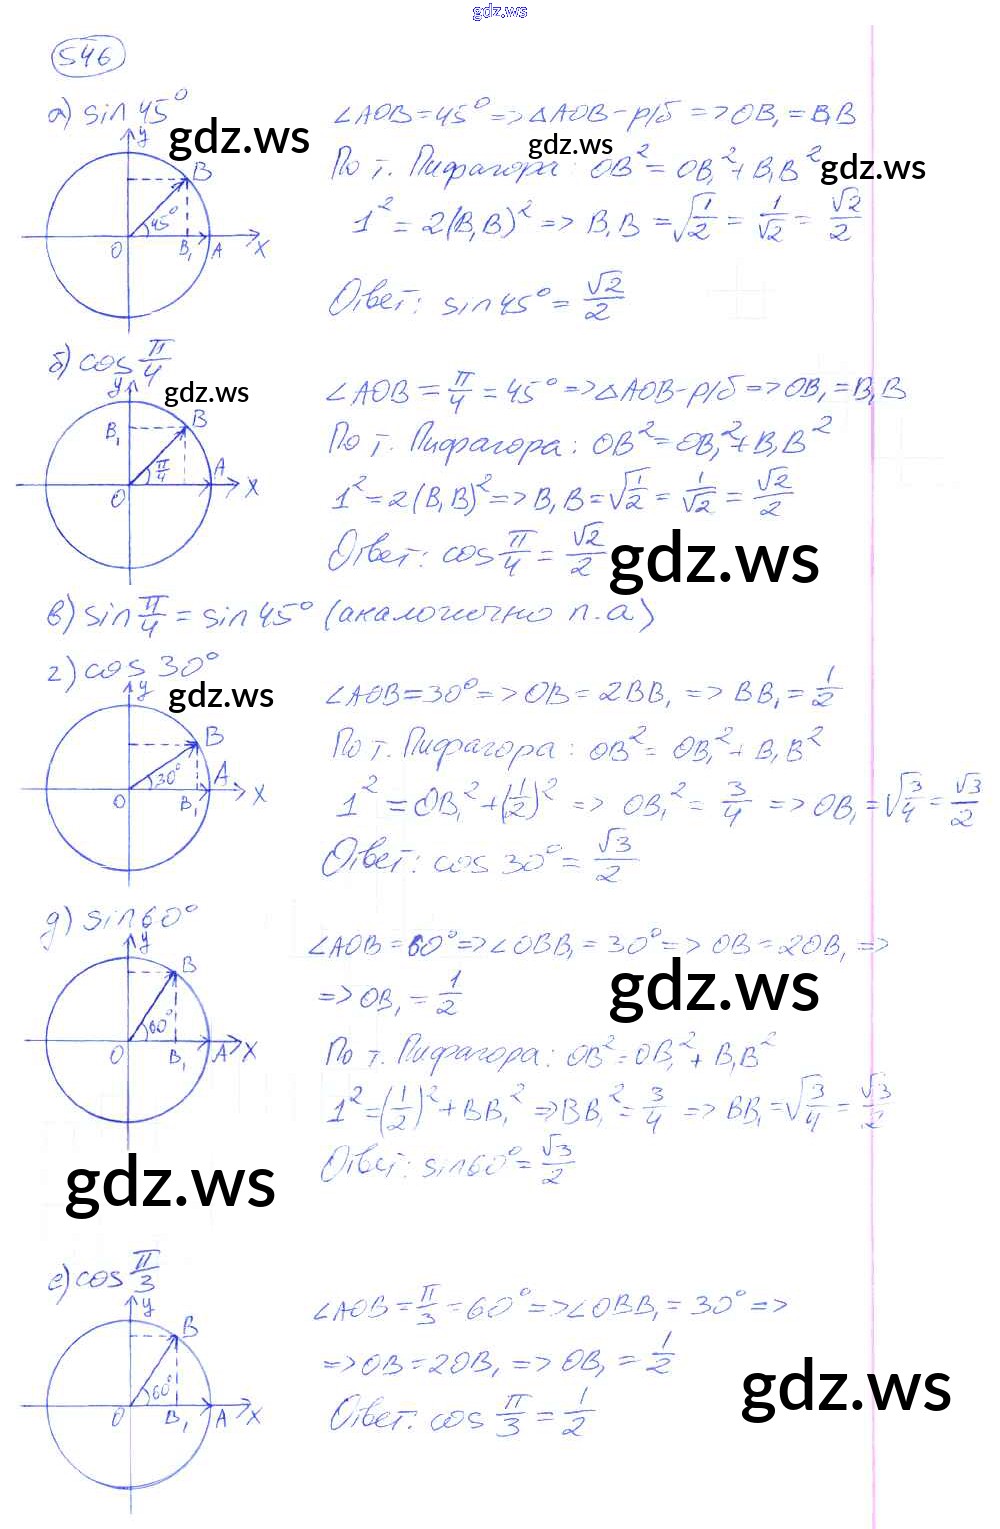 gdz.ws
546
а) sin 45°
gdz.ws
y
B
45°
O
B₁
A
x
∠AOB = 45° => △AOB - р/б => OB₁ = B₁B
gdz.ws
По т. Пифагора: OB² = OB₁² + B₁B²
gdz.ws
1² = 2(B₁B)² => B₁B = √1/2 = 1/√2 = √2/2
Ответ: sin 45° = √2/2
б) cos π/4
gdz.ws
y
B₁
B
π/4
O
A
x
∠AOB = π/4 = 45° => △AOB - р/б => OB₁ = B₁B
По т. Пифагора: OB² = OB₁² + B₁B²
1² = 2(B₁B)² => B₁B = √1/2 = 1/√2 = √2/2
Ответ: cos π/4 = √2/2
gdz.ws
в) sin π/4 = sin 45° (аналогично п.а)
г) cos 30°
gdz.ws
y
B
30°
O
B₁
A
x
∠AOB = 30° => OB = 2BB₁ => BB₁ = 1/2
По т. Пифагора: OB² = OB₁² + B₁B²
1² = OB₁² + (1/2)² => OB₁² = 3/4 => OB₁ = √3/4 = √3/2
Ответ: cos 30° = √3/2
д) sin 60°
y
B
60°
O
B₁
A
x
∠AOB = 60° => ∠OBB₁ = 30° => OB = 2OB₁ =>
=> OB₁ = 1/2
gdz.ws
По т. Пифагора: OB² = OB₁² + B₁B²
1² = (1/2)² + BB₁² => BB₁² = 3/4 => BB₁ = √3/4 = √3/2
Ответ: sin 60° = √3/2
gdz.ws
е) cos π/3
y
B
60°
O
B₁
A
x
∠AOB = π/3 = 60° => ∠OBB₁ = 30° =>
=> OB = 2OB₁ => OB₁ = 1/2
gdz.ws
Ответ: cos π/3 = 1/2